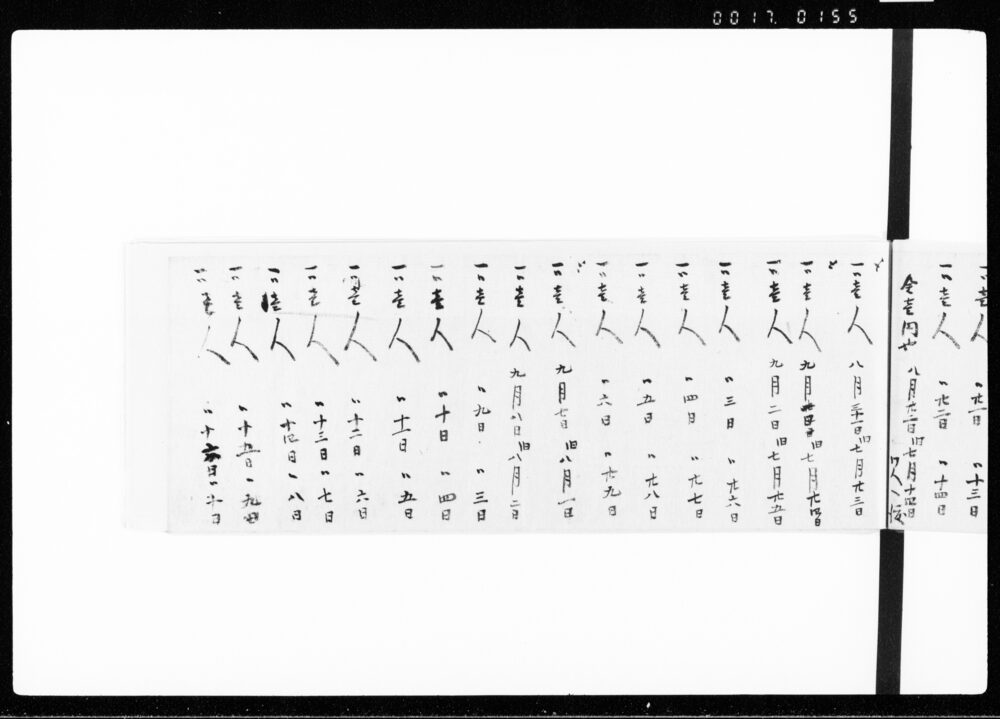 0017 0155
一〃壱人 〃廿一日 〃十三日
一〃壱人 〃廿二日 〃十四日
金壱円也 八月廿二日旧七月十四日
一〃壱人 八月三十一日旧七月廿三日
一〃壱人 九月 旧七月廿四日
一〃壱人 九月二日旧七月廿五日
一〃壱人 〃三日 〃廿六日
一〃壱人 〃四日 〃廿七日
一〃壱人 〃五日 〃廿八日
一〃壱人 〃六日 〃廿九日
一〃壱人 九月七日旧八月一日
一〃壱人 九月八日旧八月二日
一〃壱人 〃九日 〃三日
一〃壱人 〃十日 〃四日
一〃壱人 〃十一日 〃五日
一〃壱人 〃十二日 〃六日
一〃壱人 〃十三日 〃七日
一〃壱人 〃十四日 〃八日
一〃壱人 〃十五日 〃九日
〃壱人 〃十六日 〃十日